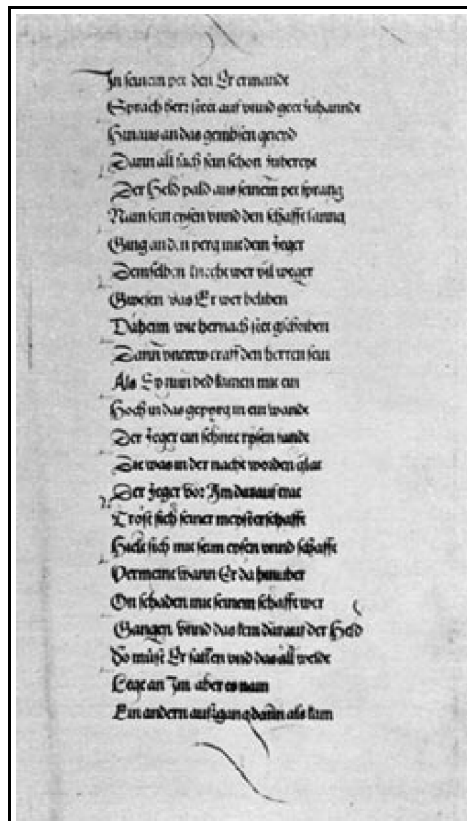 In seinem pet den Er ermande
Sprach herr steet auf vnnd geet zuhannde
Hinaus an das gembsen geierd
Dann all sach sein schon zuberept
Der Held pald aus seinem pet sprang
Nam sein eysen vnnd den schafft lanng
Gieng an den perg mit dem Jeger
Demselben knecht wer vil weger
Gwesen das Er wer beliben
Daheim wie hernach steet gschriben
Dann vntrew traff den herren sein
Als Sy nun bed kamen mit ein
Hoch in das gepyrg in ein wande
Der Jeger ein schnee rysen fande
Die was in der nacht worden glat
Der Jeger vor Im darauf trat
Tröst sich seiner meysterschafft
Hielt sich mit seim eysen vnnd schafft
Vermeint wann Er da hinüber
On schaden mit seinem schafft wer
Gangen Vnnd das kem darauf der Held
So müst Er fallen vnd das all welde
Lege an Im aber es nam
Ein andern aufzganng dann als kam